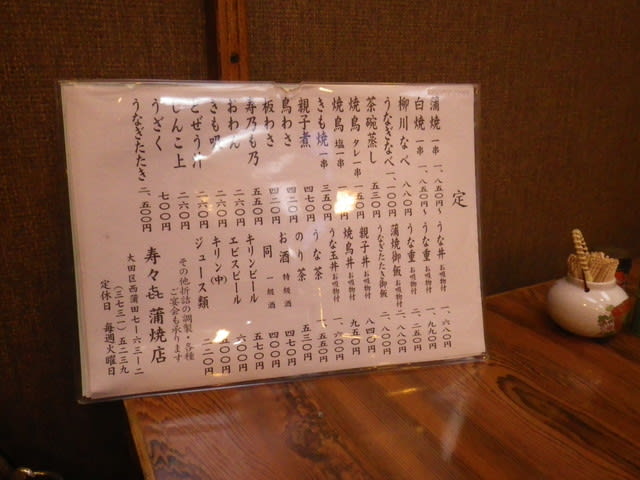 定
蒲焼 一串 一、八五〇円〜
白焼 一串 一、八五〇円〜
柳川なべ 八八〇円
うなぎなべ 一、一〇〇円
茶碗蒸し 五三〇円
焼鳥 タレ一串 一五〇円
焼鳥 塩一串
きも焼 一串 三五〇円
親子煮 四七〇円
鳥わさ 四二〇円
板わさ 四二〇円
寿乃も乃 五五〇円
おわん 二六〇円
きも吸 二六〇円
どぜう汁 二六〇円
しんこ上 二六〇円
うざく 七〇〇円
うなぎたたき 二、五〇〇円
うな丼 お吸物付 一、六八〇円
うな重 お吸物付 一、九九〇円
うな重 お吸物付 二、八五〇円
蒲焼御飯 お吸物付 二、八八〇円
うなぎたたき御飯 二、八〇〇円
親子丼 お吸物付 八四〇円
焼鳥丼 お吸物付 九五〇円
うな玉丼 お吸物付 一、六〇〇円
うな茶 一、五五〇円
のり茶 五三〇円
お酒 特級酒 四七〇円
同 一級酒 四〇〇円
キリンビール 五七〇円
エビスビール 六〇〇円
キリン(中) 五〇〇円
ジュース類 二二〇円
その他折詰の調製・各種
ご宴会も承ります
寿々㐂 蒲焼店
大田区西蒲田七ー六三ー二
(三七三一)五二三九
定休日 毎週火曜日